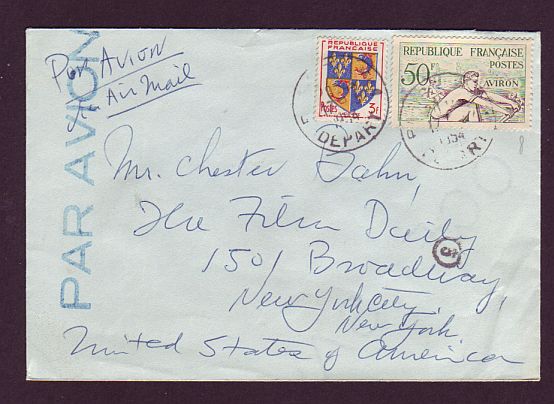 Par Avion
Air Mail
PAR AVION
REPUBLIQUE
FRANÇAISE
3F
REPUBLIQUE FRANÇAISE
POSTES
50F
AVIRON
DEPART
1954
Mr. Chester Bahn,
The Film Daily
1501 Broadway,
New York City,
New York
United States of America